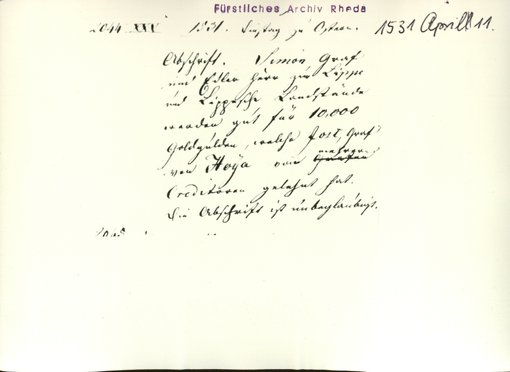 Fürstliches Archiv Rheda
2044 XXV 1531. Dinstag zu Ostern. 1531 April 11.
Abschrift. Simon Graf
und Edler Herr zur Lippe
und Lippesche Landstände
werden gut für 10,000
Goldgulden, welche Jost, Graf
von Hoÿa von mehrern Grafen
Creditoren gelehnt hat.
Die Abschrift ist unbeglaubigt.